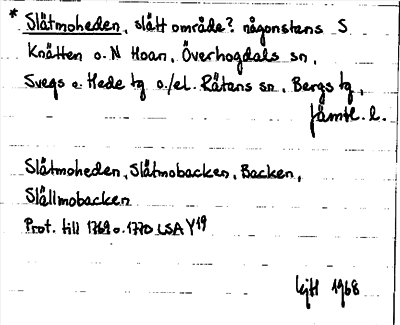 * Slåtmoheden, slått område? någonstans S
Knätten o. N Hoan, Överhogdals sn,
Svegs o. Hede tg o./el. Rätans sn, Bergs tg,
Jämtl. l.
Slåtmoheden, Slåtmobacken, Backen,
Slållmobacken
Prot. till 1769 o. 1770 LSA Y19
1968